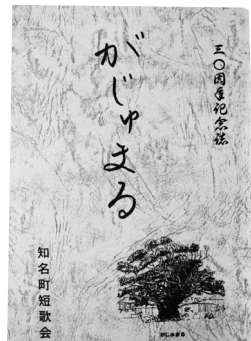 三〇周年記念誌
がじゅまる
知名町短歌会
がじゅまる